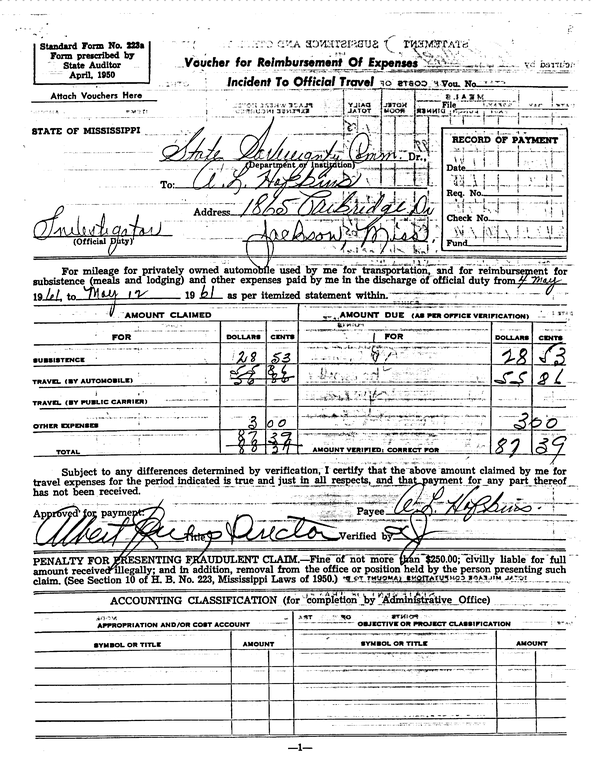 Standard Form No. 223a
Form prescribed by
State Auditor
April, 1950
Voucher for Reimbursement Of Expenses
Incident To Official Travel
Vou. No.
Attach Vouchers Here
File
STATE OF MISSISSIPPI
RECORD OF PAYMENT
Date
Req. No.
Check No.
Fund
State Sovereignty Comm. Dr.,
(Department or Institution)
To: A. L. Hopkins
Address 1865 Dr
Investigator
(Official Duty)
Jackson, Miss.
For mileage for privately owned automobile used by me for transportation, and for reimbursement for
subsistence (meals and lodging) and other expenses paid by me in the discharge of official duty from 4 May
1961, to May 12 1961 as per itemized statement within.
AMOUNT CLAIMED
AMOUNT DUE (AS PER OFFICE VERIFICATION)
FOR DOLLARS CENTS FOR DOLLARS CENTS
SUBSISTENCE 28 53 28 53
TRAVEL (BY AUTOMOBILE) 55 86 55 86
TRAVEL (BY PUBLIC CARRIER)
OTHER EXPENSES 3 00 3 00
TOTAL 87 39 AMOUNT VERIFIED; CORRECT FOR 87 39
Subject to any differences determined by verification, I certify that the above amount claimed by me for
travel expenses for the period indicated is true and just in all respects, and that payment for any part thereof
has not been received.
Approved for payment:
Payee A. L. Hopkins.
Albert Title Director Verified by
PENALTY FOR PRESENTING FRAUDULENT CLAIM.—Fine of not more than $250.00; civilly liable for full
amount received illegally; and in addition, removal from the office or position held by the person presenting such
claim. (See Section 10 of H. B. No. 223, Mississippi Laws of 1950.)
ACCOUNTING CLASSIFICATION (for completion by Administrative Office)
APPROPRIATION AND/OR COST ACCOUNT OBJECTIVE OR PROJECT CLASSIFICATION
SYMBOL OR TITLE AMOUNT SYMBOL OR TITLE AMOUNT
—1—